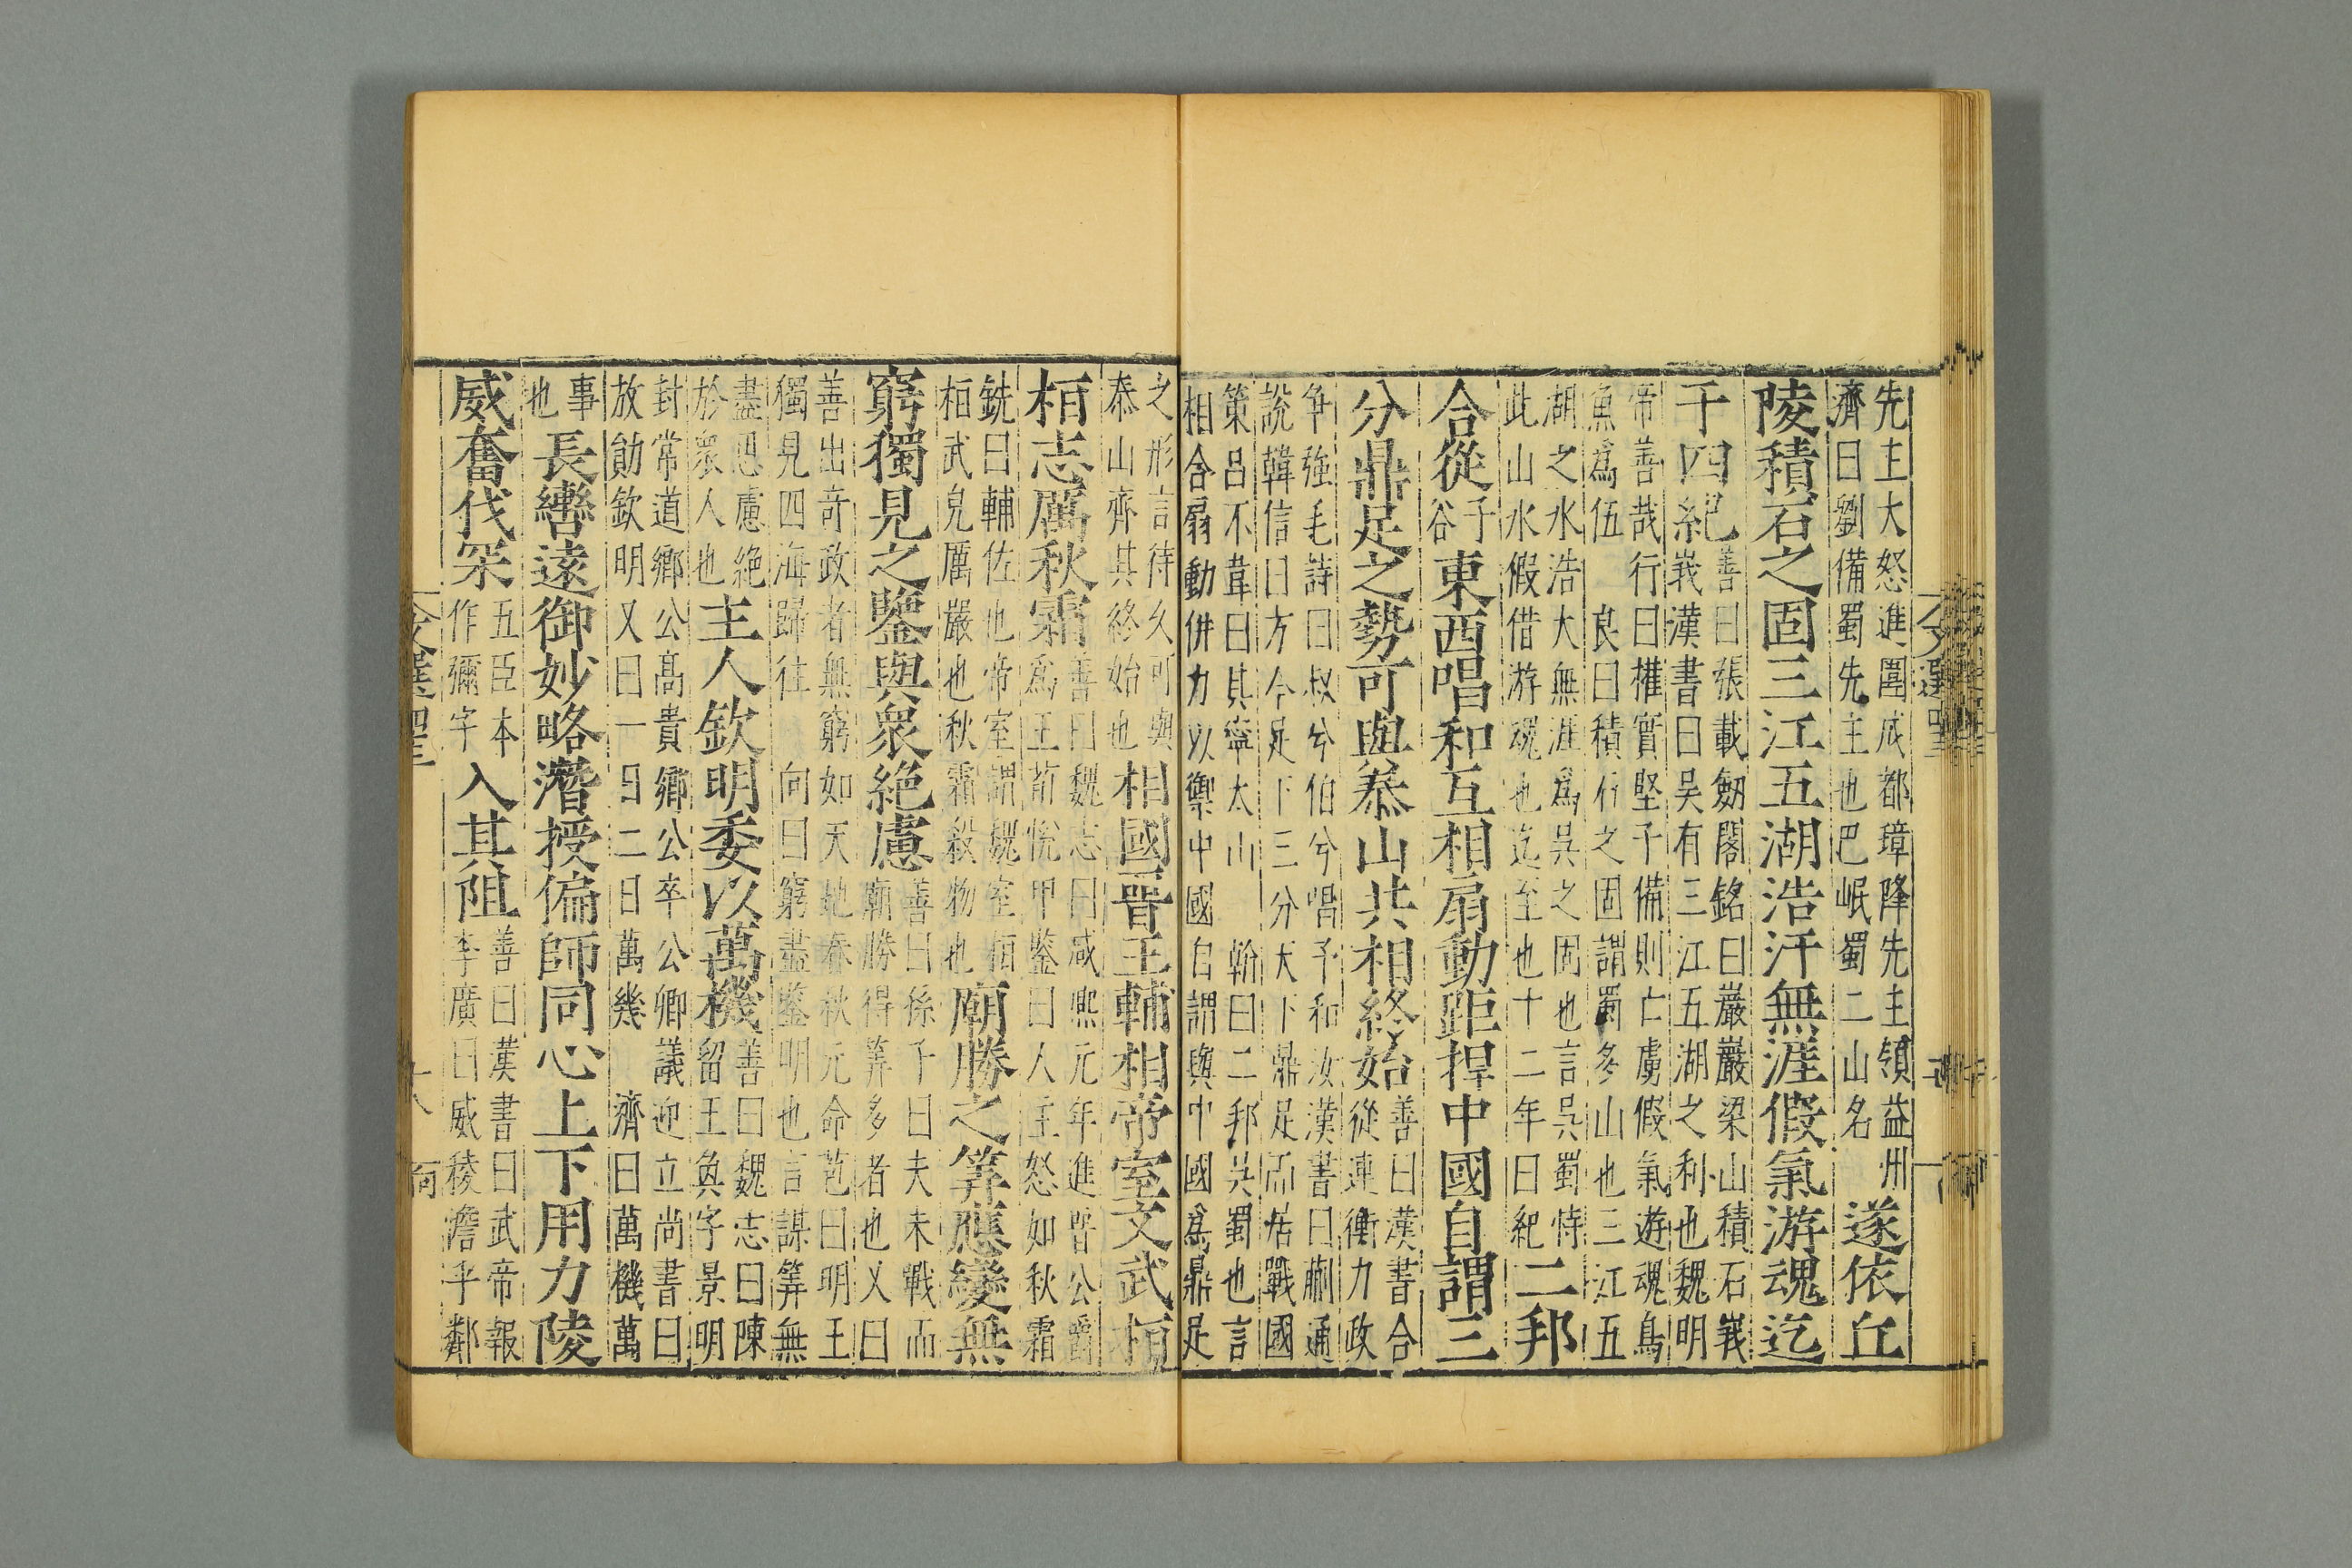 先主大怒進圍成都璋降先主領益州
濟曰劉備蜀先主也巴岷蜀二山名
遂依丘
陵積石之固三江五湖浩汗無涯假氣游魂迄
于四紀
善曰張載劒閣銘曰巖巖梁山積石峩
峩漢書曰吳有三江五湖之利也魏明
帝善哉行曰權實堅子備則亡虜假氣遊魂鳥
魚爲伍
良曰積石之固謂蜀多山也三江五
湖之水浩大無涯爲吳之固也言吳蜀恃
此山水假借游魂也迄至也十二年曰紀
二邦
合從
子
谷
東西唱和互相扇動距捍中國自謂三
分鼎足之勢可與泰山共相終始
善曰漢書合
從連衡力政
争強毛詩曰叔兮伯兮唱予和汝漢書曰蒯通
說韓信曰方今足下三分天下鼎足而居戰國
策呂不韋曰其寧太山
翰曰二邦吳蜀也言
相合扇動併力以禦中國自謂與中國爲鼎足
之形言待久可與
泰山齊其終始也
相國晉王輔相帝室文武桓
桓志厲秋霜
善曰魏志曰咸熈元年進晉公爵
爲王荀悅申鑒曰人主怒如秋霜
銑曰輔佐也帝室謂魏室桓
桓武皃厲嚴也秋霜殺物也
廟勝之筭應變無
窮獨見之鑒與衆絕慮
善曰孫子曰夫未戰而
廟勝得筭多者也又曰
善出奇政者無窮如天地春秋元命苞曰明王
獨見四海歸往
向曰窮盡鑒明也言謀筭無
盡思慮絕
於衆人也
主人欽明委以萬機
善曰魏志曰陳
留王奐字景明
封常道鄉公髙貴鄉公卒公卿議迎立尚書曰
放勛欽明又曰一日二日萬幾
濟曰萬機萬
事
也
長轡遠御妙略潛授偏師同心上下用力陵
威奮伐罙
五臣本
作彌字
入其阻
善曰漢書曰武帝報
李廣曰威稜憺乎鄰